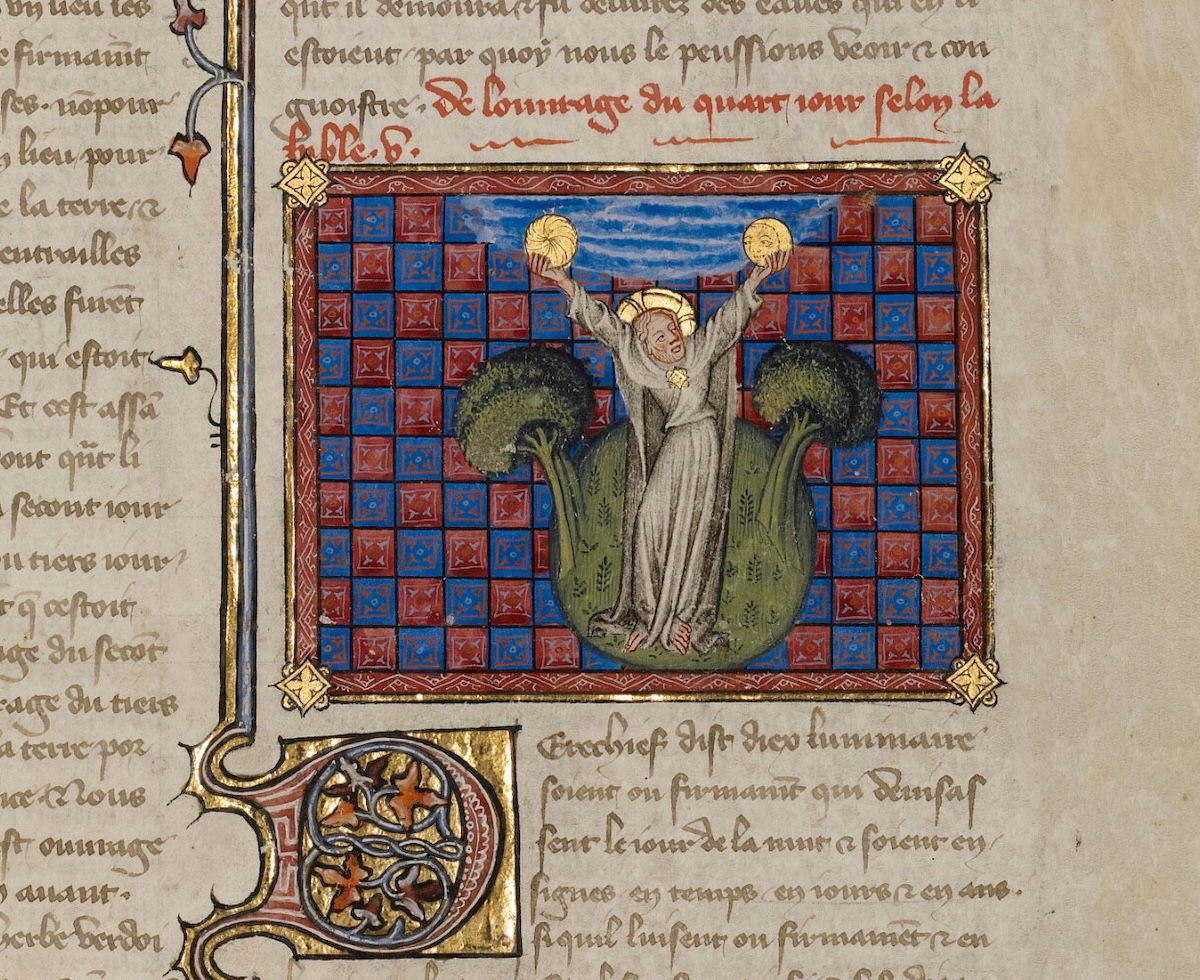 un lieu les
e firmam̄t
ses. nōpour
lieu pour
e la terre ⁊
entrailles
elles furēt
qui estoit
Et cest assā
ont q̄ut li
second iour
u tiers iour
t q̄ cestoit
age du secōt
rage du tiers
a terre por
nce ⁊ Nous
st ouurage
auant.
herbe verdoi
quit il demoura ⁊ fu deliurez des eaues qui en li
estoient par quoy nous le peussions veoir ⁊ con
gnoistre. De louurage du quart iour selon la
bible. v.
Derechief dist diex luminaire
soient ou firmam̄t qui deuisas
sent le iour de la nuit ⁊ soient en
signes en temps en iours ⁊ en ans.
si quil luisent ou firmamēt ⁊ en